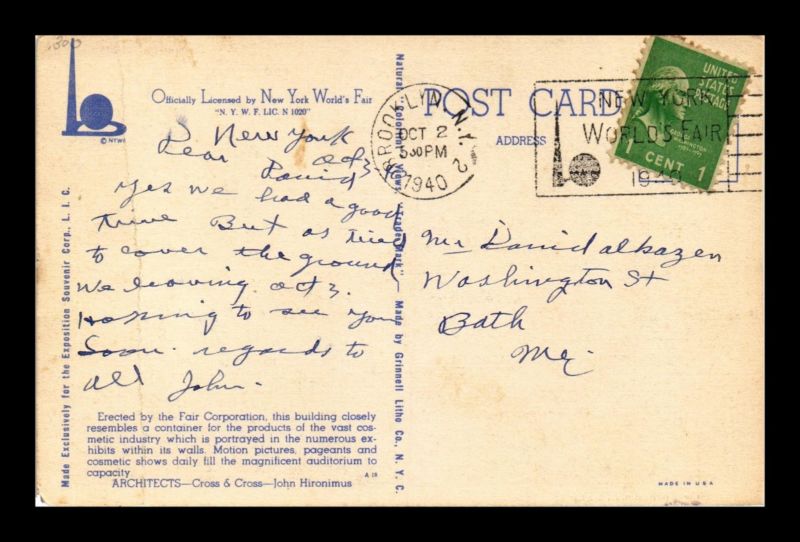 300
Officially Licensed by New York World's Fair
"N. Y. W. F. LIC. N 1020"
© NYWF
Made Exclusively for the Exposition Souvenir Corp., L. I. C.
New York
Oct 3
Dear David
Yes we had a good
time But as tried
to cover the ground
We leaving Oct 3.
Hopping to see you
Soon. regards to
all John.
Erected by the Fair Corporation, this building closely
resembles a container for the products of the vast cos-
metic industry which is portrayed in the numerous ex-
hibits within its walls. Motion pictures, pageants and
cosmetic shows daily fill the magnificent auditorium to
capacity
A 18
ARCHITECTS—Cross & Cross—John Hironimus
Natural "Coloriut" Views "Trade Mark" Made by Grinnell Litho Co., N. Y. C.
POST CARD
ADDRESS
BROOKLYN, N.Y.
OCT 2
5 30 PM
1940
2
NEW YORK
WORLD'S FAIR
1940
UNITED
STATES
POSTAGE
WASHINGTON
1 CENT 1
Mr David alkazen
Washington St
Bath
Me.
MADE IN U S A